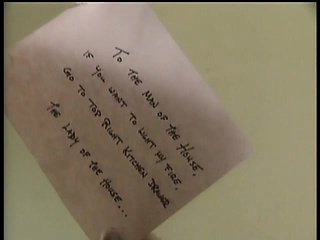 TO THE MAN OF THE HOUSE,
IF YOU WANT TO LIGHT MY FIRE,
GO TO TOP RIGHT KITCHEN DRAWER
THE LADY OF THE HOUSE...